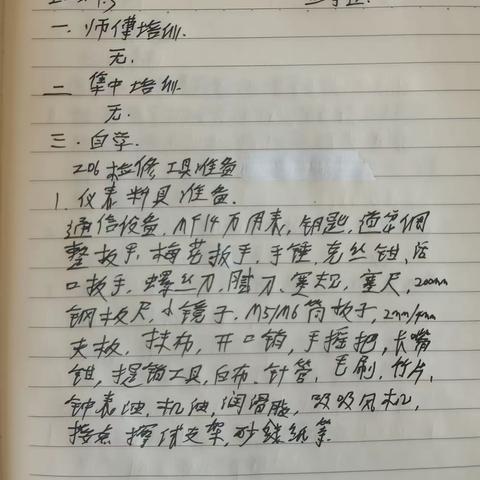 一. 师傅培训.
无.
二 集中培训.
无.
三. 自学.
ZD6 检修工具准备
1. 仪表料具准备.
通信设备, MF14万用表, 钥匙, 道岔调
整扳手, 梅花扳手, 手锤, 克丝钳, 活
口扳手, 螺丝刀, 塞尺, 200mm
钢板尺, 小镜子, M5/M6筒扳子, 2mm/4mm
夹板, 抹布, 开口销, 手摇把, 长嘴
钳, 提销工具, 白布, 针管, 毛刷, 竹片,
钟表油, 机油, 润滑脂, 吹吸风机,
接点擦拭支架, 砂绿纸等.